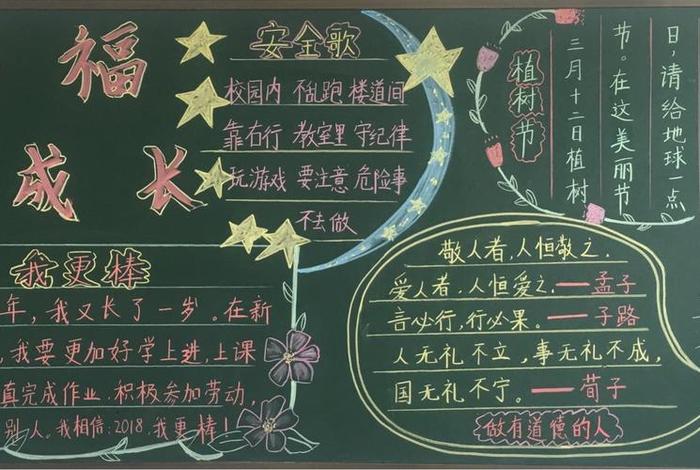 福
成 长
安全歌
校园内 不乱跑 楼道间
靠右行 教室里 守纪律
玩游戏 要注意 危险事
不去做
植树节
三月十二日植树
节。在这美丽节
日,请给地球一点
我更棒
年,我又长了一岁。在新
,我要更加好学上进,上课
真完成作业,积极参加劳动,
别人。我相信:2018,我更棒!
敬人者,人恒敬之,
爱人者,人恒爱之,——孟子
言必行,行必果。——子路
人无礼不立,事无礼不成,
国无礼不宁。——荀子
做有道德的人